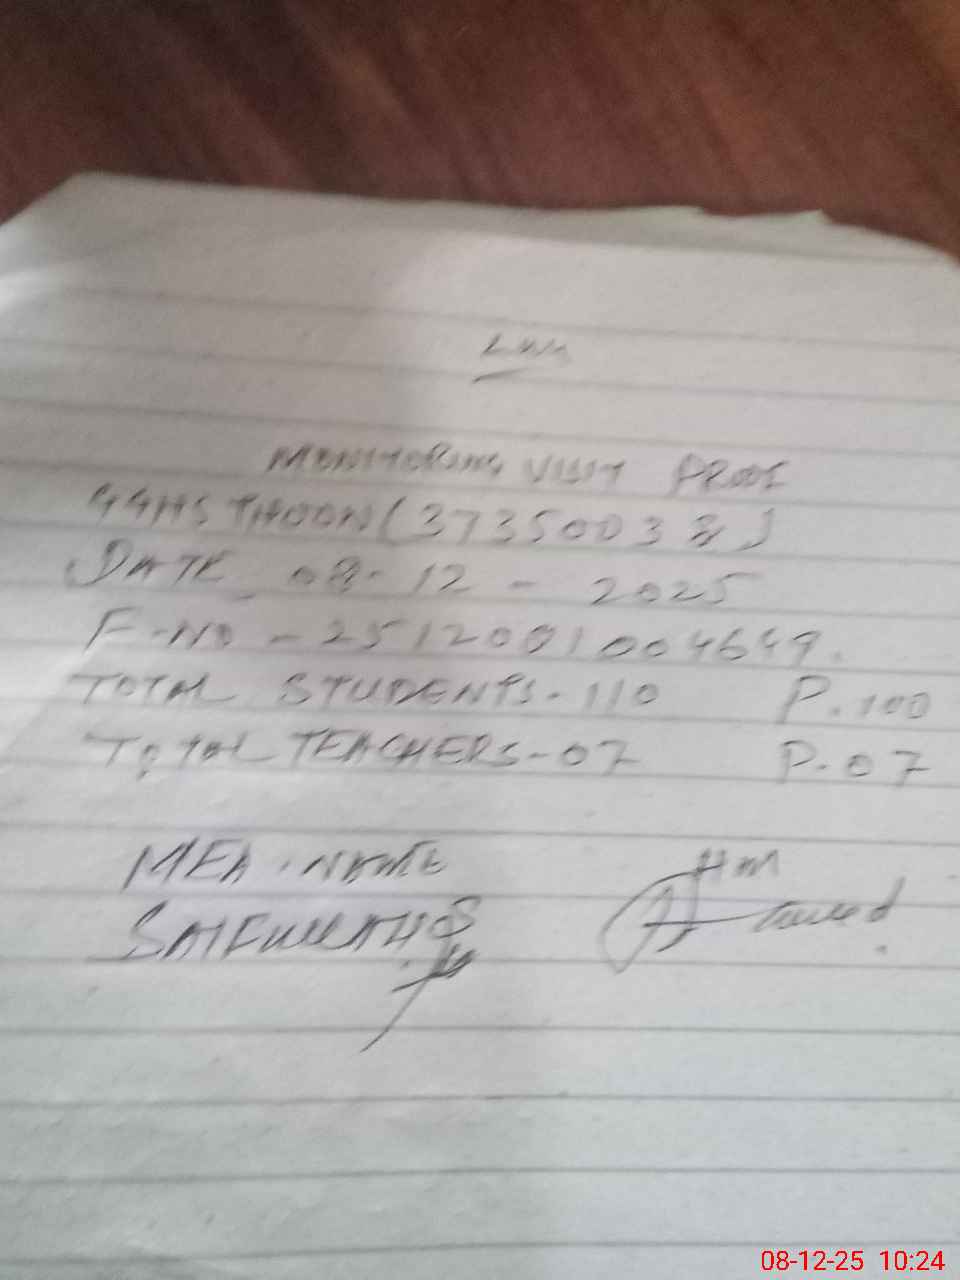 MONITORING VISIT PROOF
GGHS THOON (37350038)
DATE 08-12-2025
F-NO-25120001004649.
TOTAL STUDENTS-110 P.100
TOTAL TEACHERS-07 P.07
MEA.NAME HM
SAIFULLAH
08-12-25 10:24